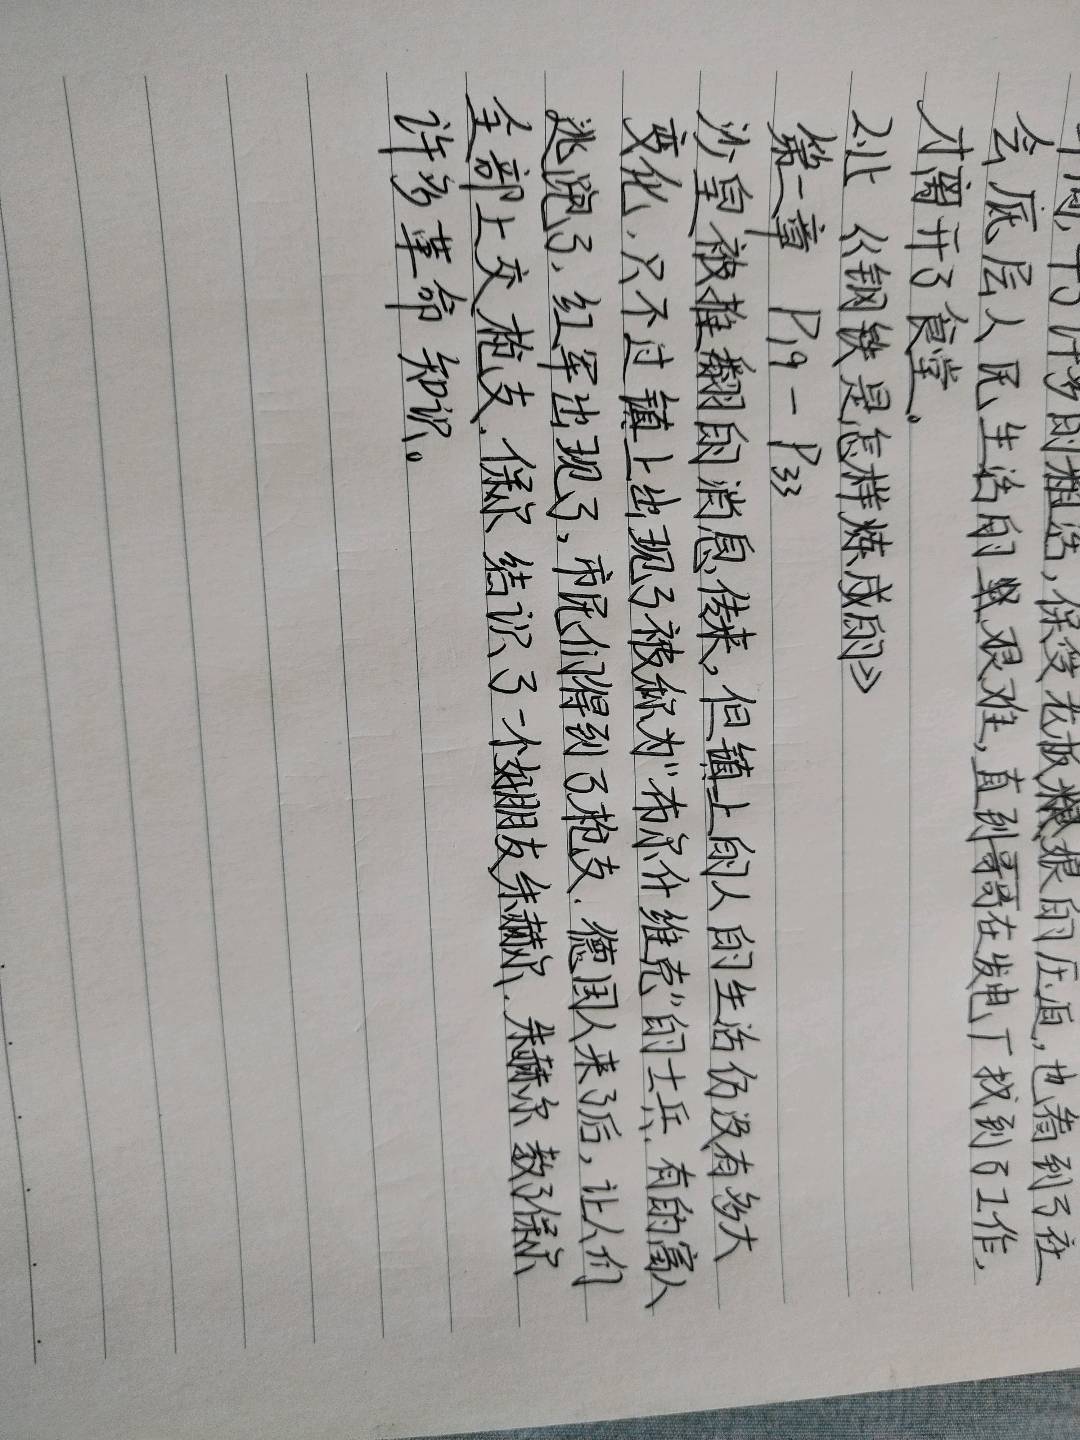 了许多的粗活，保受老板狠狠的压盾，也看到了社
会底层人民生活的艰难，直到哥哥在发电厂找到了工作，
才离开了食堂。
《钢铁是怎样炼成的》
第二章 P19－P33
沙皇被推翻的消息传来，但镇上的人的生活仍没有多大
变化，只不过镇上出现了被称为“布尔什维克”的士兵，有的富人
逃跑了，红军出现了，市民们得到了枪支．德国人来了后，让人们
全部上交枪支．保尔结识了一个朋友朱赫尔，朱赫尔教了保尔
许多革命知识。